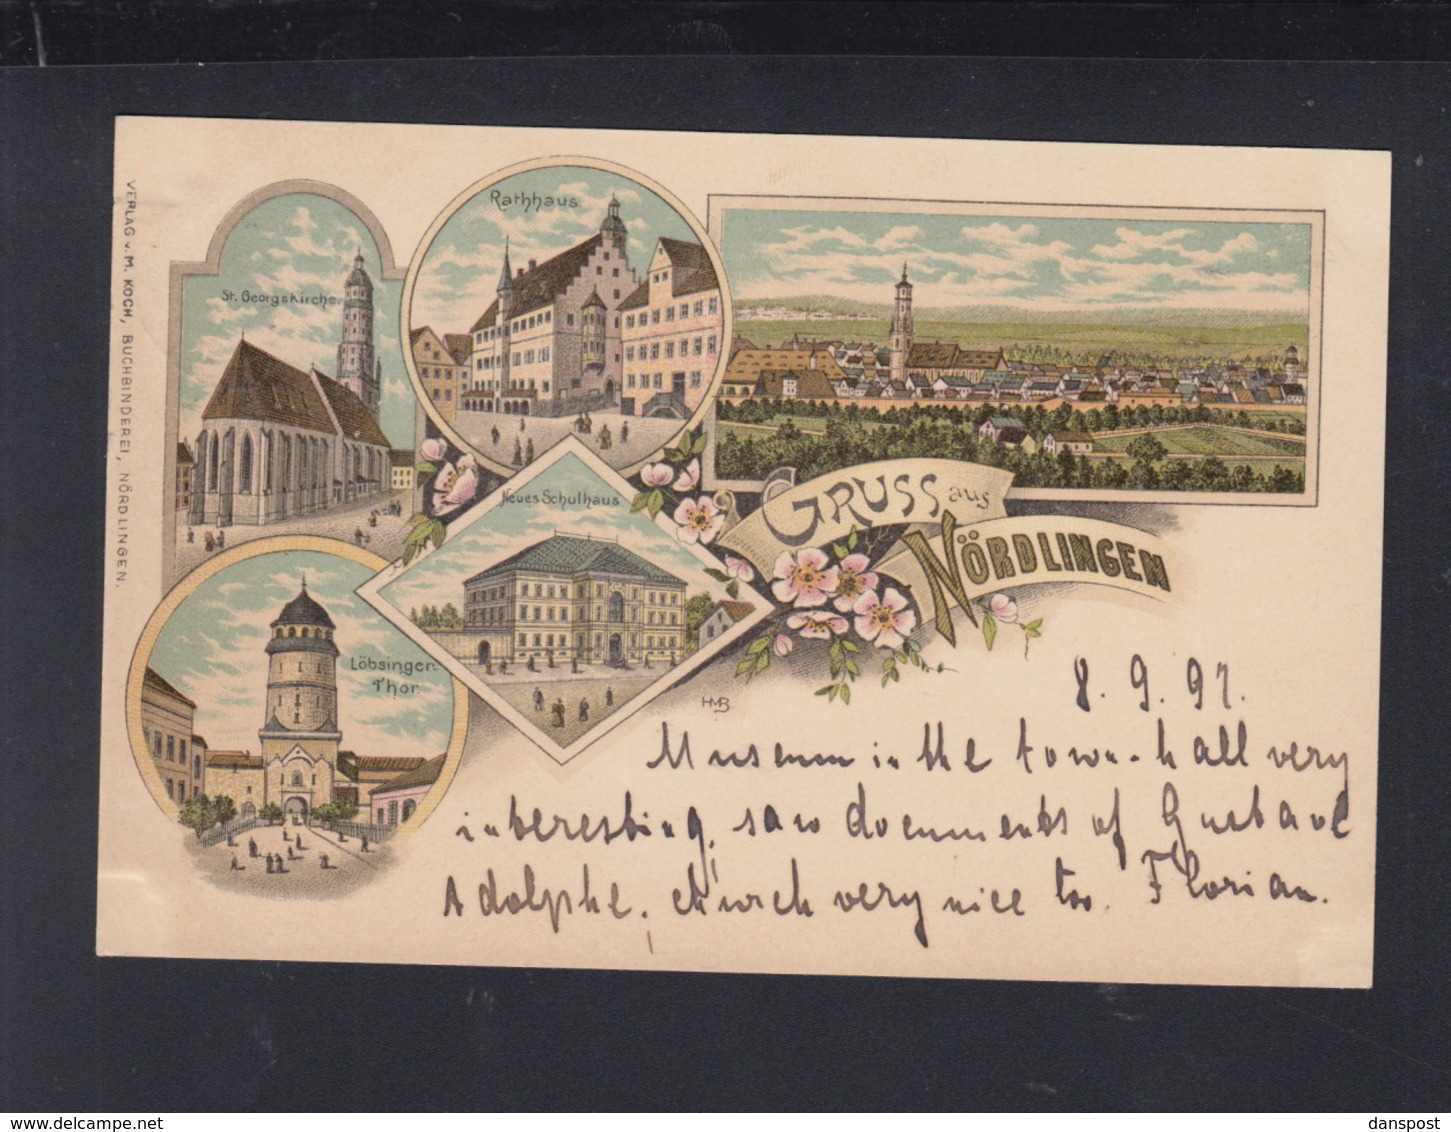 VERLAG v. M. KOCH, BUCHBINDEREI, NÖRDLINGEN.
St. Georgskirche.
Rathhaus
Neues Schulhaus
Löbsinger
Thor
GRUSS aus
NÖRDLINGEN
HMB
8. 9. 97.
Museum in the town-hall very
interesting, saw documents of Gustave
Adolphe. church very nice too. Florian.
www.delcampe.net
danspost